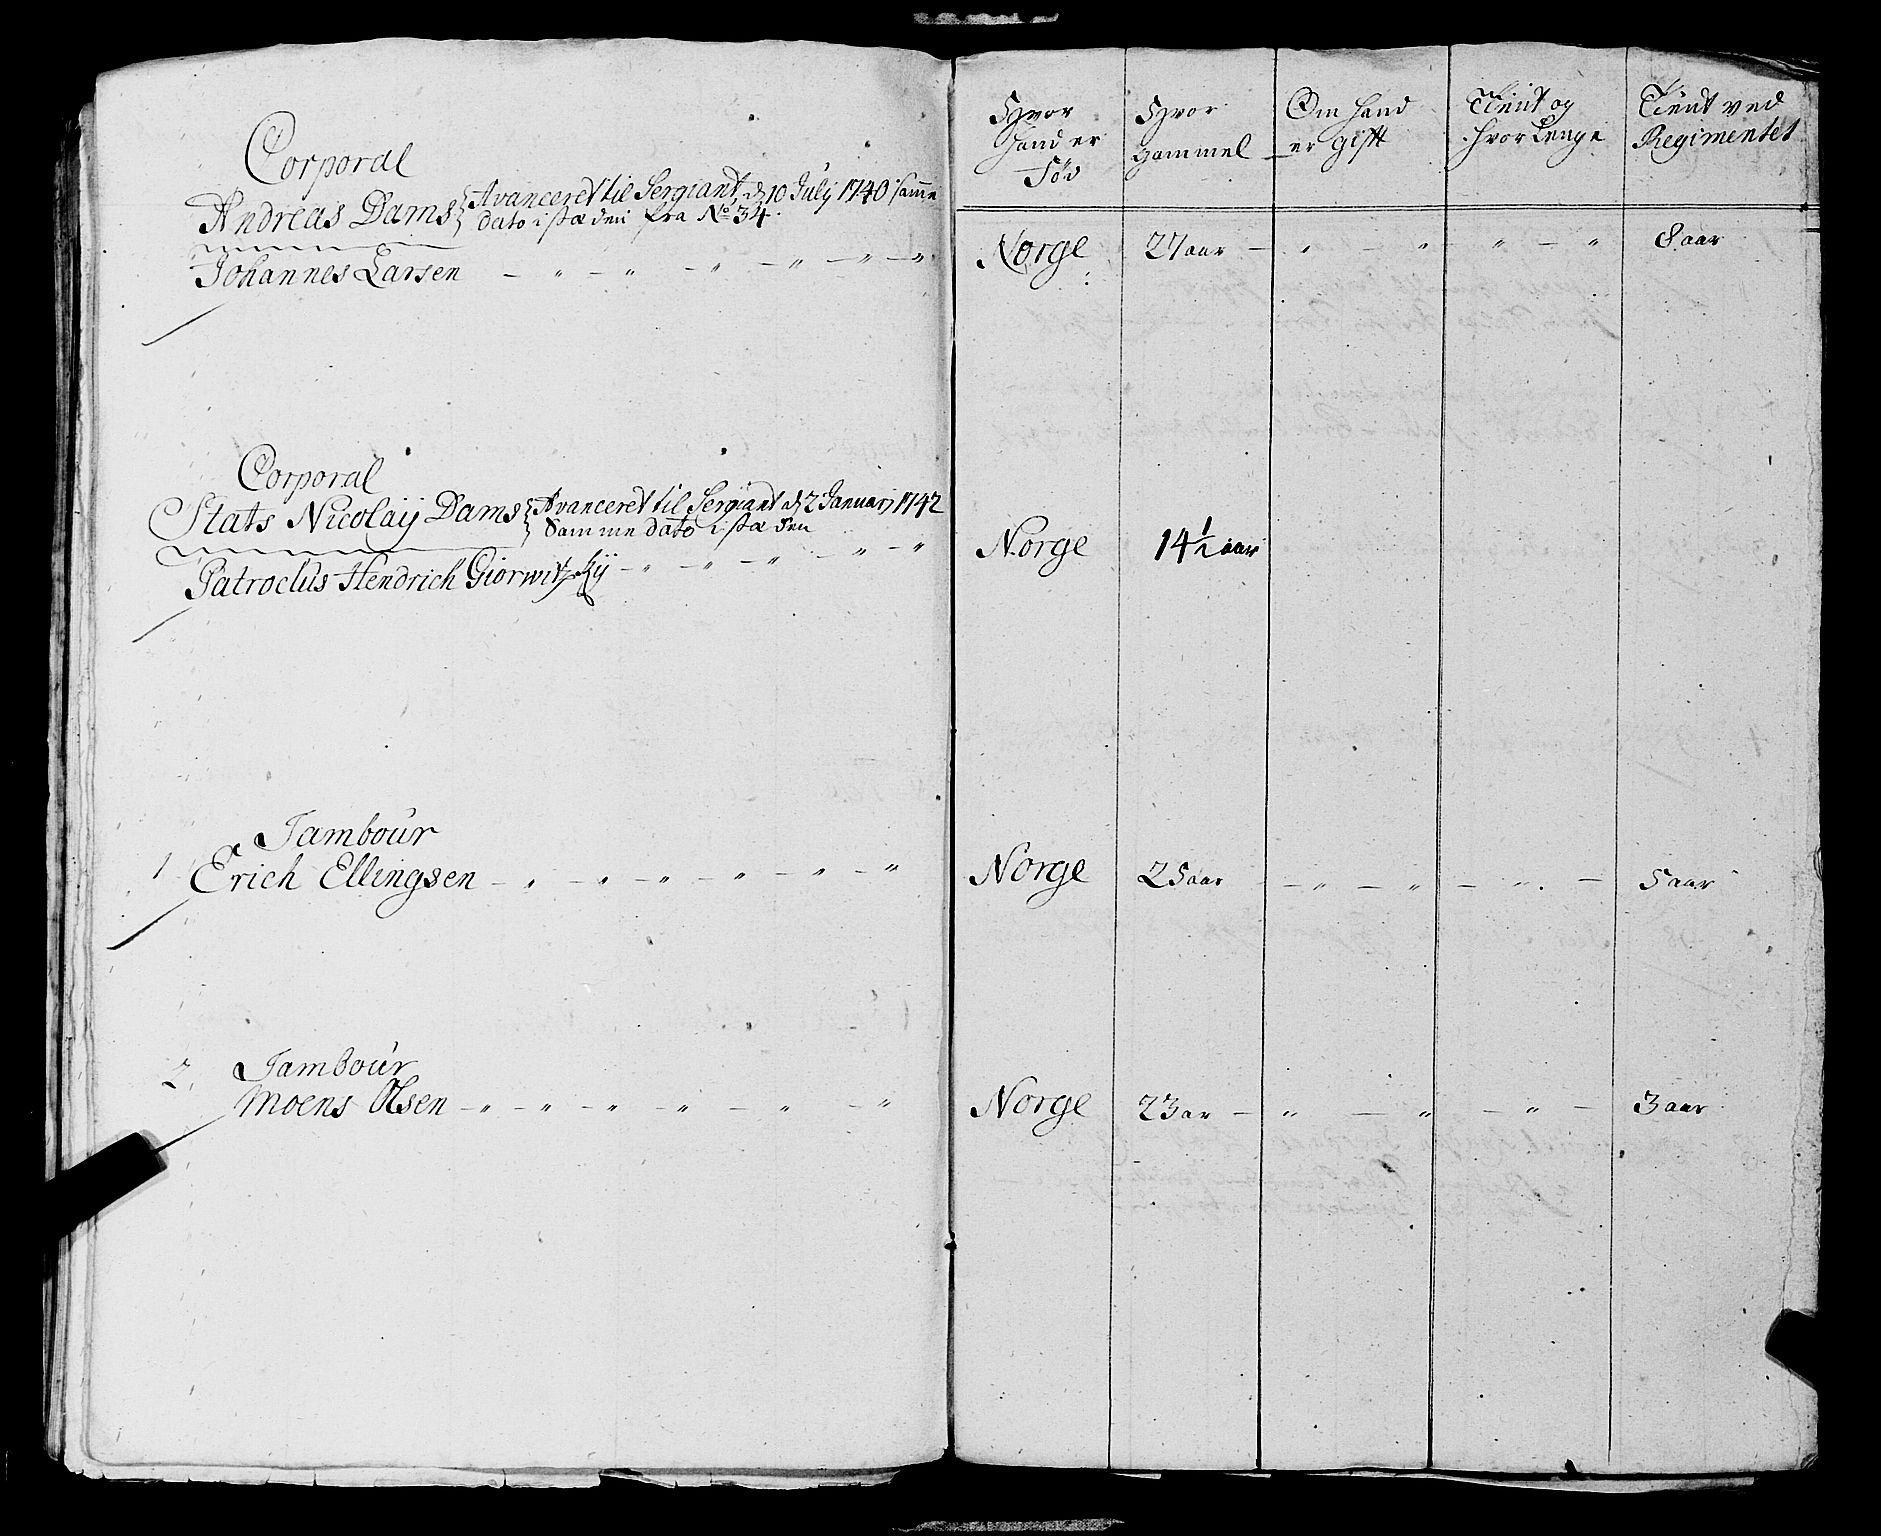 Corporal
Andreas Dams { Avanceret til Sergiant, d 10 Julij 1740 samme
dato i stæden fra No 34.
Johannes Larsen — " — " — " — " — " — "
Corporal
Stats Nicolaij Dams { Avanceret til Sergiant d 2 Januarj 1742
Samme dato i stæden
Patroclus Hendrich Giorwitzkij — " — " — " — " — "
Tambour
1 Erich Ellingsen — " — " — " — " — " — "
2. Tambour
Moens Olsen — " — " — " — " — " — "
Hvor hand er Fød
Hvor gammel
Om hand er gift
Tient og hvor Lenge
Tient ved Regimentet
Norge 27 aar — " — " " — " 8 aar
Norge 14 1/2 aar
Norge 25 aar — " — " — " — 5 aar
Norge 23 ar — " — " — " — 3 aar